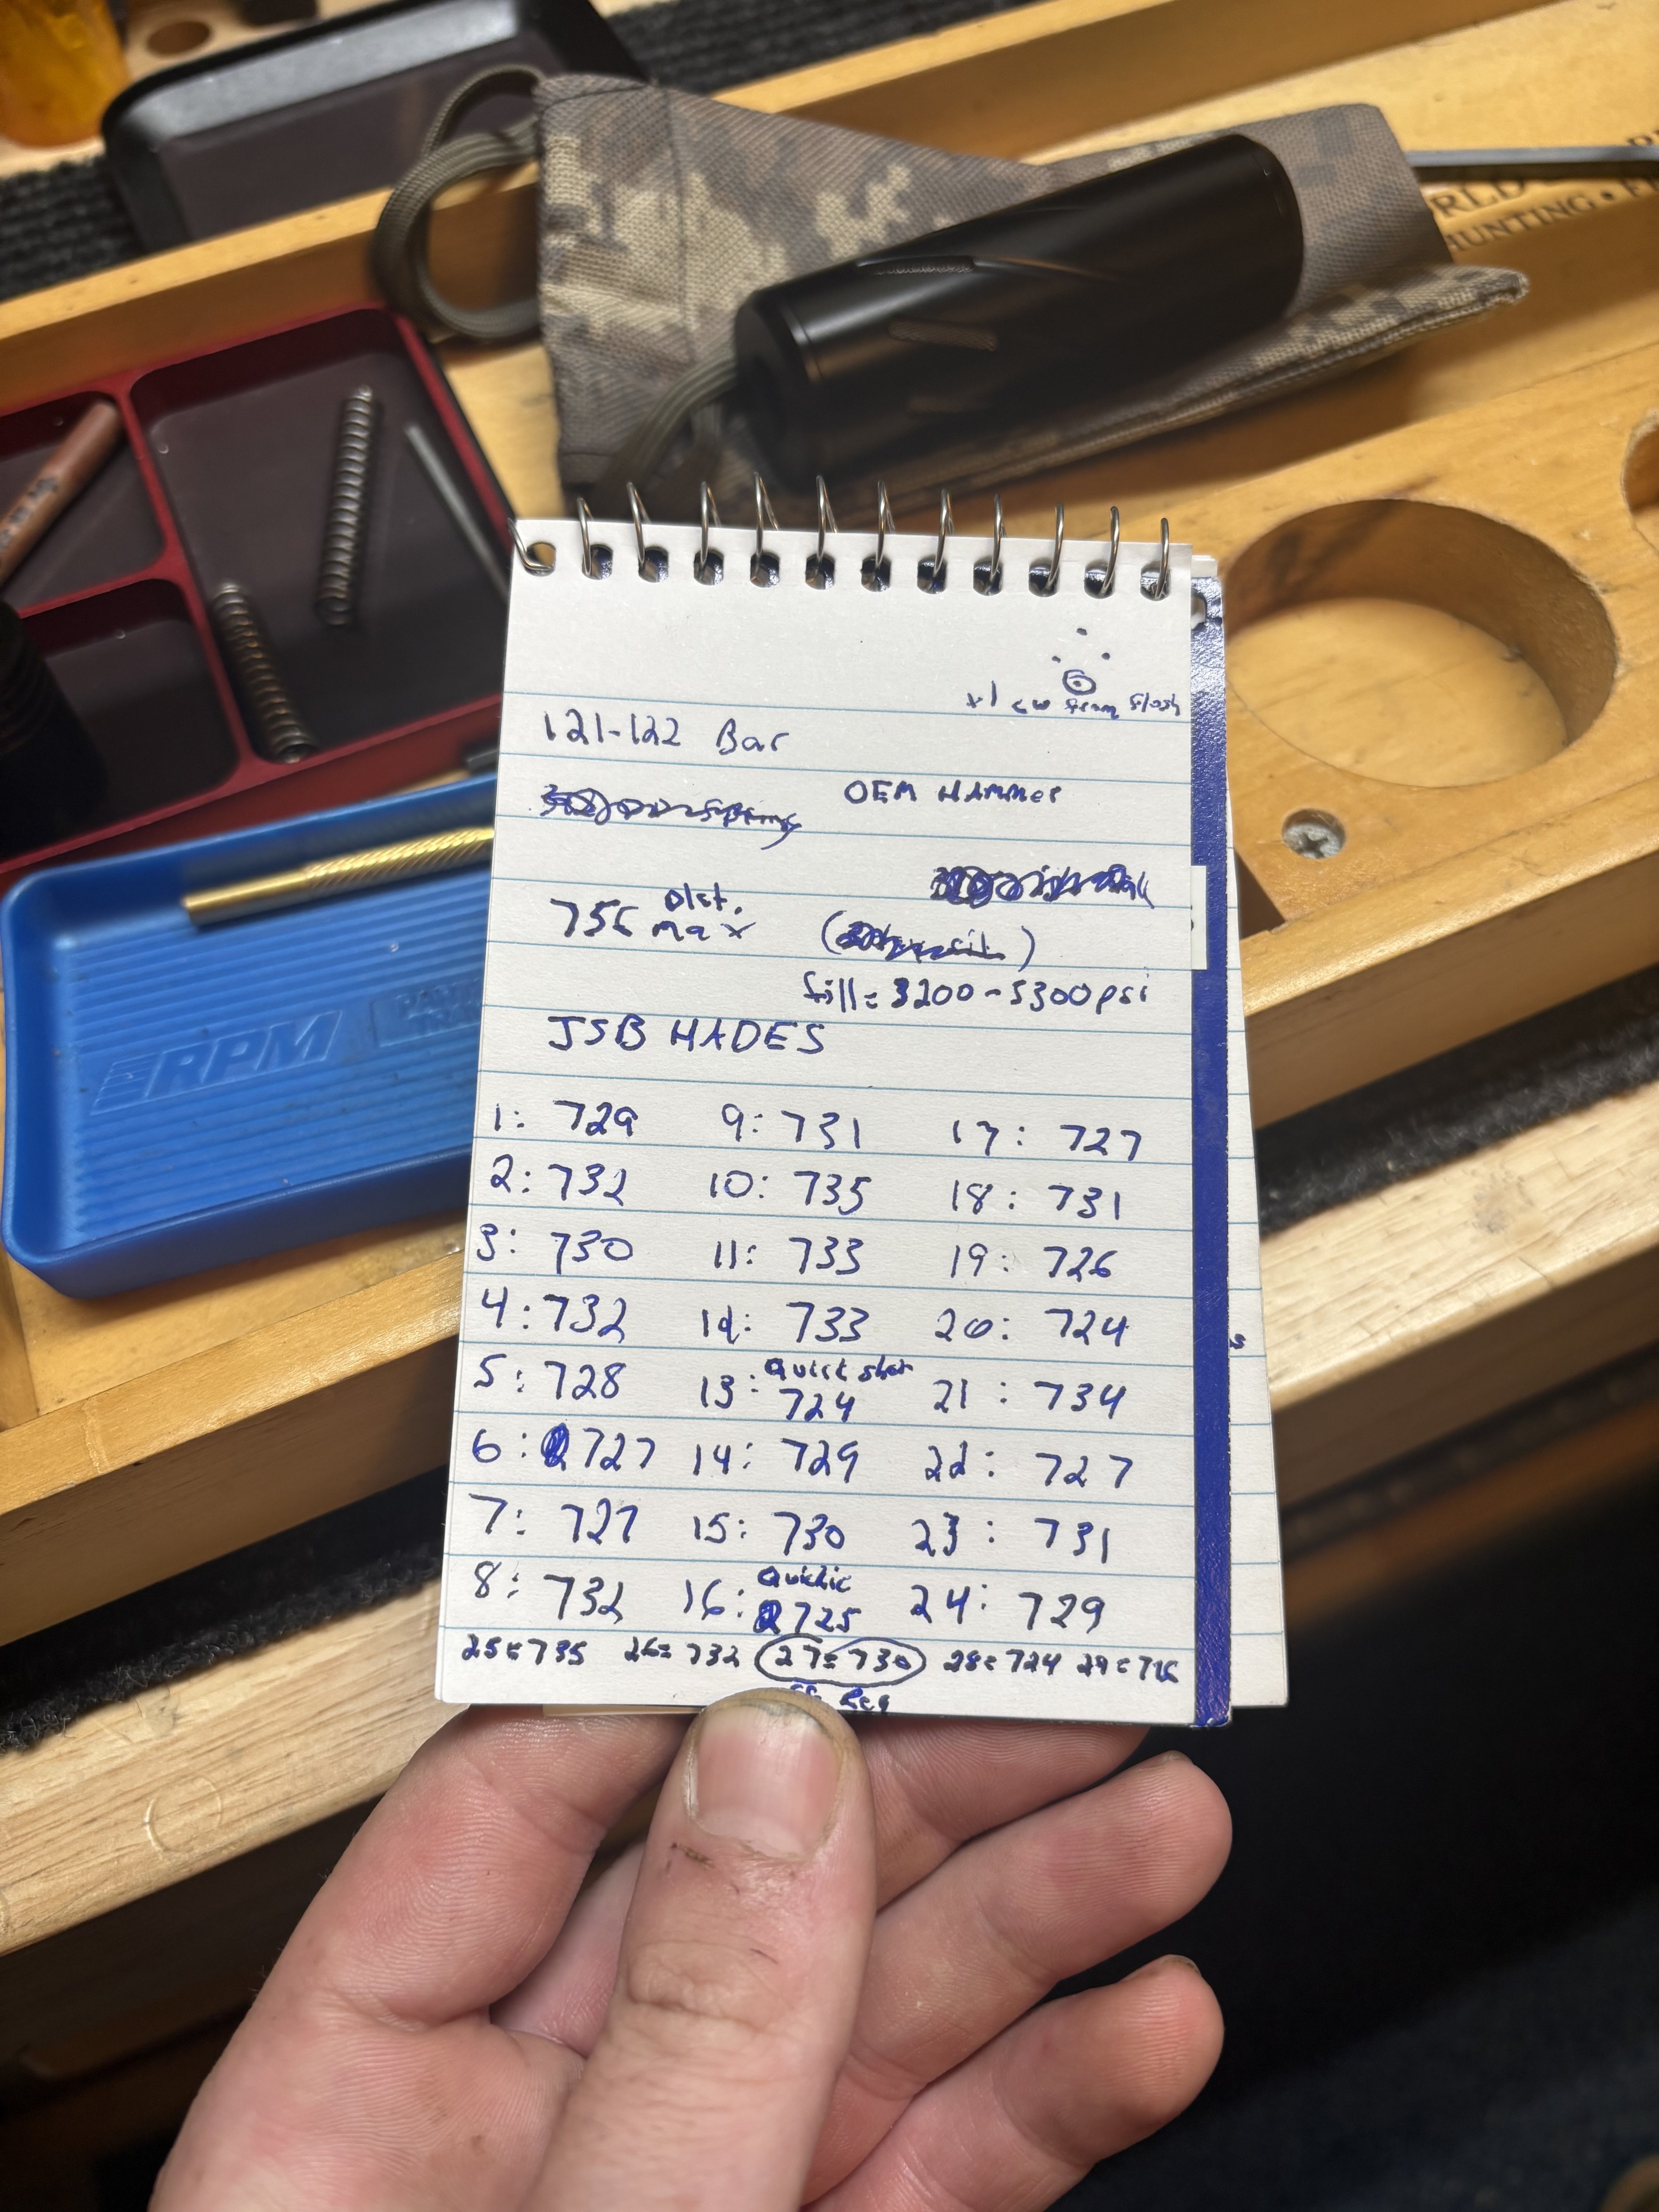 RLD
HUNTING • F
+1 cw from flush
121-122 Bar
OEM HAMMER
Dist.
max
fill = 3200-3300psi
JSB HADES
1: 729 9: 731 17: 727
2: 732 10: 735 18: 731
3: 730 11: 733 19: 726
4: 732 12: 733 20: 724
Quick shot
5: 728 13: 724 21: 734
6: 727 14: 729 22: 727
7: 727 15: 730 23: 731
Quickie
8: 732 16: 725 24: 729
25= 735 26= 732 27= 730 28= 724 29=
Reg
RPM
s